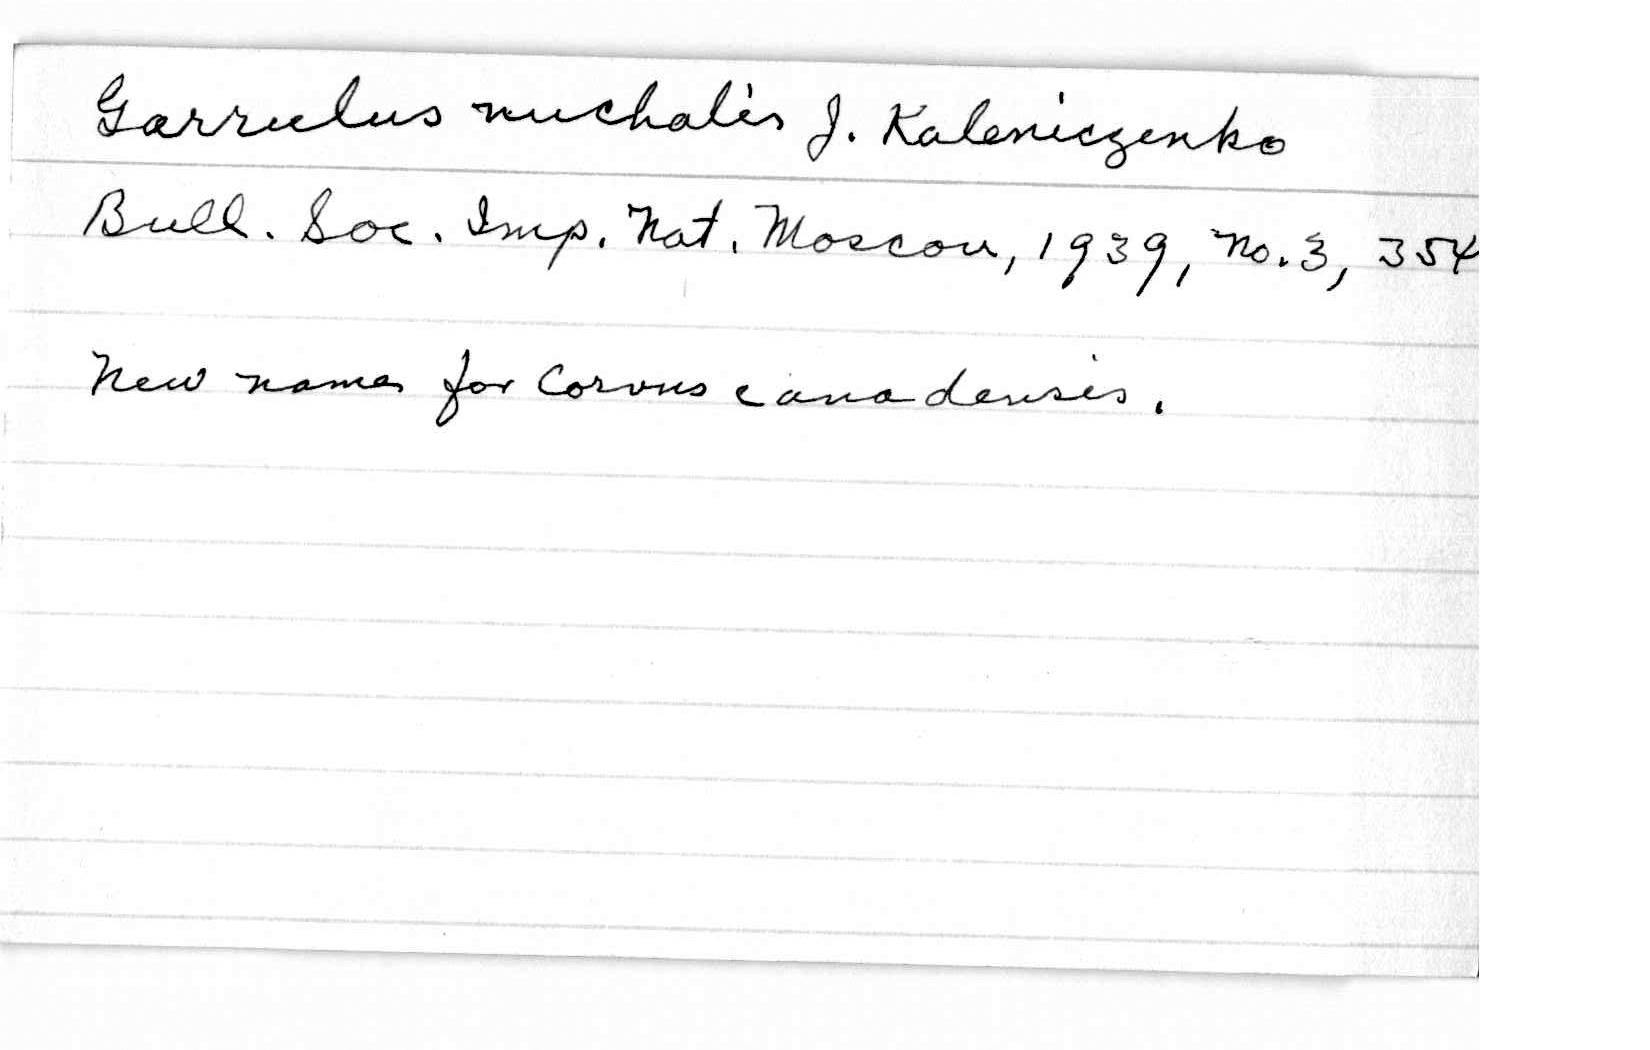 Garrulus nuchalis J. Kaleniczenko
Bull. Soc. Imp. Nat. Moscou, 1939, No. 3, 354
New names for Corvus canadensis.